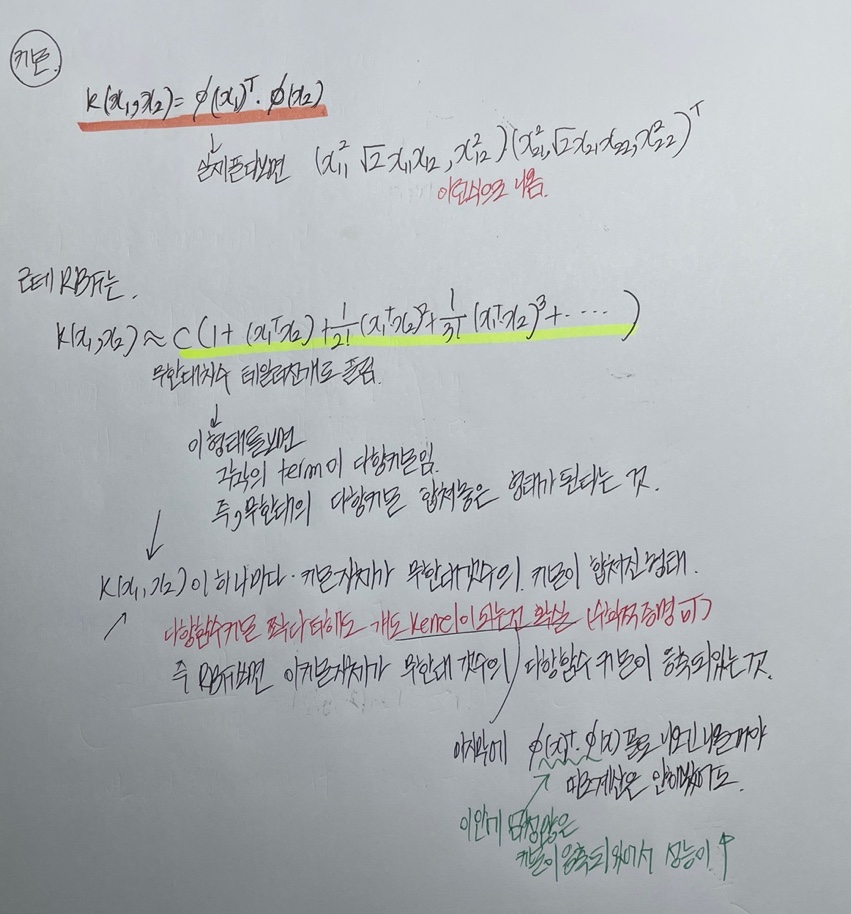 커널.
K(x₁,x₂) = φ(x₁)ᵀ·φ(x₂)
↓
실제푼다보면 (x₁₁² √2x₁₁x₁₂, x₁₂²)(x₂₁², √2x₂₁x₂₂, x₂₂²)ᵀ
이런식으로 나옴.
근데 RBF는.
K(x₁,x₂) ≈ C(1 + (x₁ᵀx₂) + 1/2! (x₁ᵀx₂)² + 1/3! (x₁ᵀx₂)³ + ‥‥)
무한대차수 테일러전개로 풀림.
↓
이형태를보면
각각의 term이 다항커널임.
즉, 무한대의 다항커널 합쳐놓은 형태가 된다는 것.
↓
K(x₁,x₂)이 하나마다 · 커널자체가 무한대갯수의 커널이 합쳐진 형태.
↗ 다항함수커널 쫙다 더해도 걔도 Kenel이 되는건 확실 (수학적증명 必)
즉 RBF보면 이커널자체가 무한대 갯수의 다항함수 커널이 응축되있는것.
마지막에 φ(x)ᵀ·φ(x) 꼴로 나오긴 나올거야
따로계산은 안해봤어도.
이안에 무성많은
커널이 응축되있어서 성능이 ↑